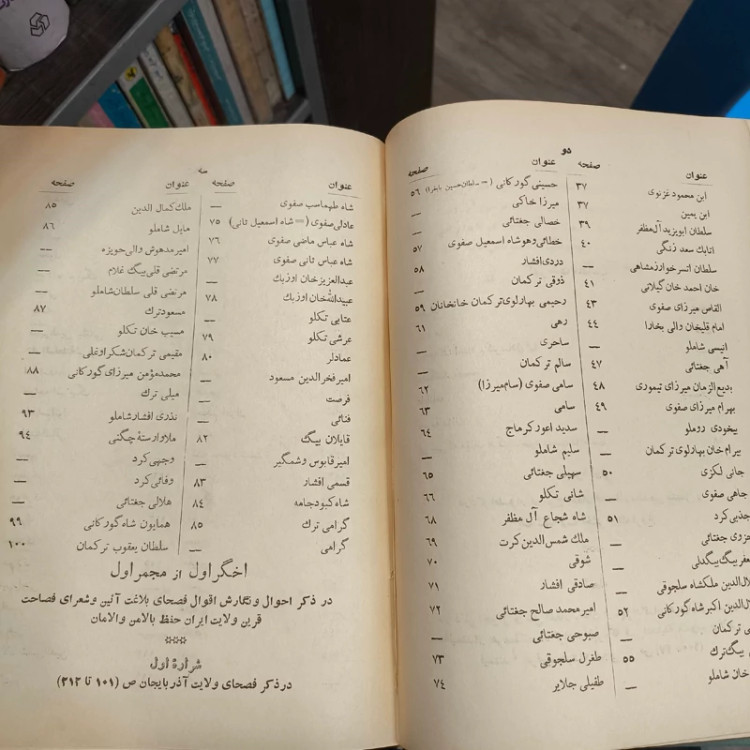 دو
عنوان صفحه
ابن محمود غزنوی ۳۷
ابن یمین ۳۷
سلطان ابویزید آل مظفر ۳۹
اتابك سعد زنگی ۴۰
سلطان اتسر خوارزمشاهی —
خان احمد خان گیلانی ۴۱
القاص میرزای صفوی ۴۳
امام قلیخان والی بخارا ۴۴
انیسی شاملو —
آهی جغتائی ۴۷
بدیع الزمان میرزای تیموری ۴۸
بهرام میرزای صفوی ۴۹
بیخودی روملو —
بیرام خان بهارلوی ترکمان —
جانی لکزی ۵۰
جاهی صفوی —
جذبی کرد ۵۱
جغتائی —
بیگ بیگدلی —
الدین ملکشاه سلجوقی —
الدین اکبر شاه گورکانی ۵۲
ترکمان —
بیگ ترك ۵۵
خان شاملو —
عنوان صفحه
حسینی گورکانی (= سلطان حسین بایقرا) ۵۶
میرزا خاکی —
خصالی جغتائی —
خطائی وهوشاه اسمعیل صفوی ۵۷
دردی افشار ۵۸
ذوقی ترکمان —
رحیمی بهارلوی ترکمان خانخانان ۵۹
رهی ۶۱
ساحری —
سالم ترکمان —
سامی صفوی (سام میرزا) ۶۲
سامی ۶۳
سدید اعور کرماج ۶۴
سلیم شاملو —
سهیلی جغتائی ۶۵
شانی تکلو ۶۶
شاه شجاع آل مظفر ۶۸
ملك شمس الدین کرت ۶۹
شوقی ۷۰
صادقی افشار ۷۱
امیر محمد صالح جغتائی ۷۲
صبوحی جغتائی —
طغرل سلجوقی ۷۳
طفیلی جلایر ۷۴
سه
عنوان صفحه
شاه طهماسب صفوی —
عادلی صفوی (= شاه اسمعیل ثانی) ۷۵
شاه عباس ماضی صفوی ۷۶
شاه عباس ثانی صفوی ۷۷
عبدالعزیز خان اوزبك —
عبیدالله خان اوزبك ۷۸
عتابی تکلو —
عرشی تکلو ۷۹
عمادلر ۸۰
امیر فخرالدین مسعود —
فرصت —
فنائی —
قابلان بیگ ۸۲
امیر قابوس وشمگیر —
قسمی افشار ۸۳
شاه کبود جامه ۸۴
گرامی ترك ۸۵
گرامی —
عنوان صفحه
ملك کمال الدین ۸۵
مایل شاملو ۸۶
امیر مدهوش والی حویزه —
مرتضی قلی بیگ غلام —
مرتضی قلی سلطان شاملو —
مسعود ترك ۸۷
مسیب خان تکلو —
مقیمی ترکمان شکر اوغلی —
محمد مؤمن میرزای گورکانی ۸۸
میلی ترك —
نذری افشار شاملو ۹۳
ملا وارستهٔ چگنی ۹۴
وجیهی کرد —
وفائی کرد —
هلالی جغتائی —
همایون شاه گورکانی ۹۹
سلطان یعقوب ترکمان ۱۰۰
اخگر اول از مجمر اول
در ذکر احوال و نگارش اقوال فصحای بلاغت آئین و شعرای فصاحت
قرین ولایت ایران حفظ بالامن والامان
***
شرارهٔ اول
در ذکر فصحای ولایت آذربایجان ص (۱۰۱ تا ۲۱۲)